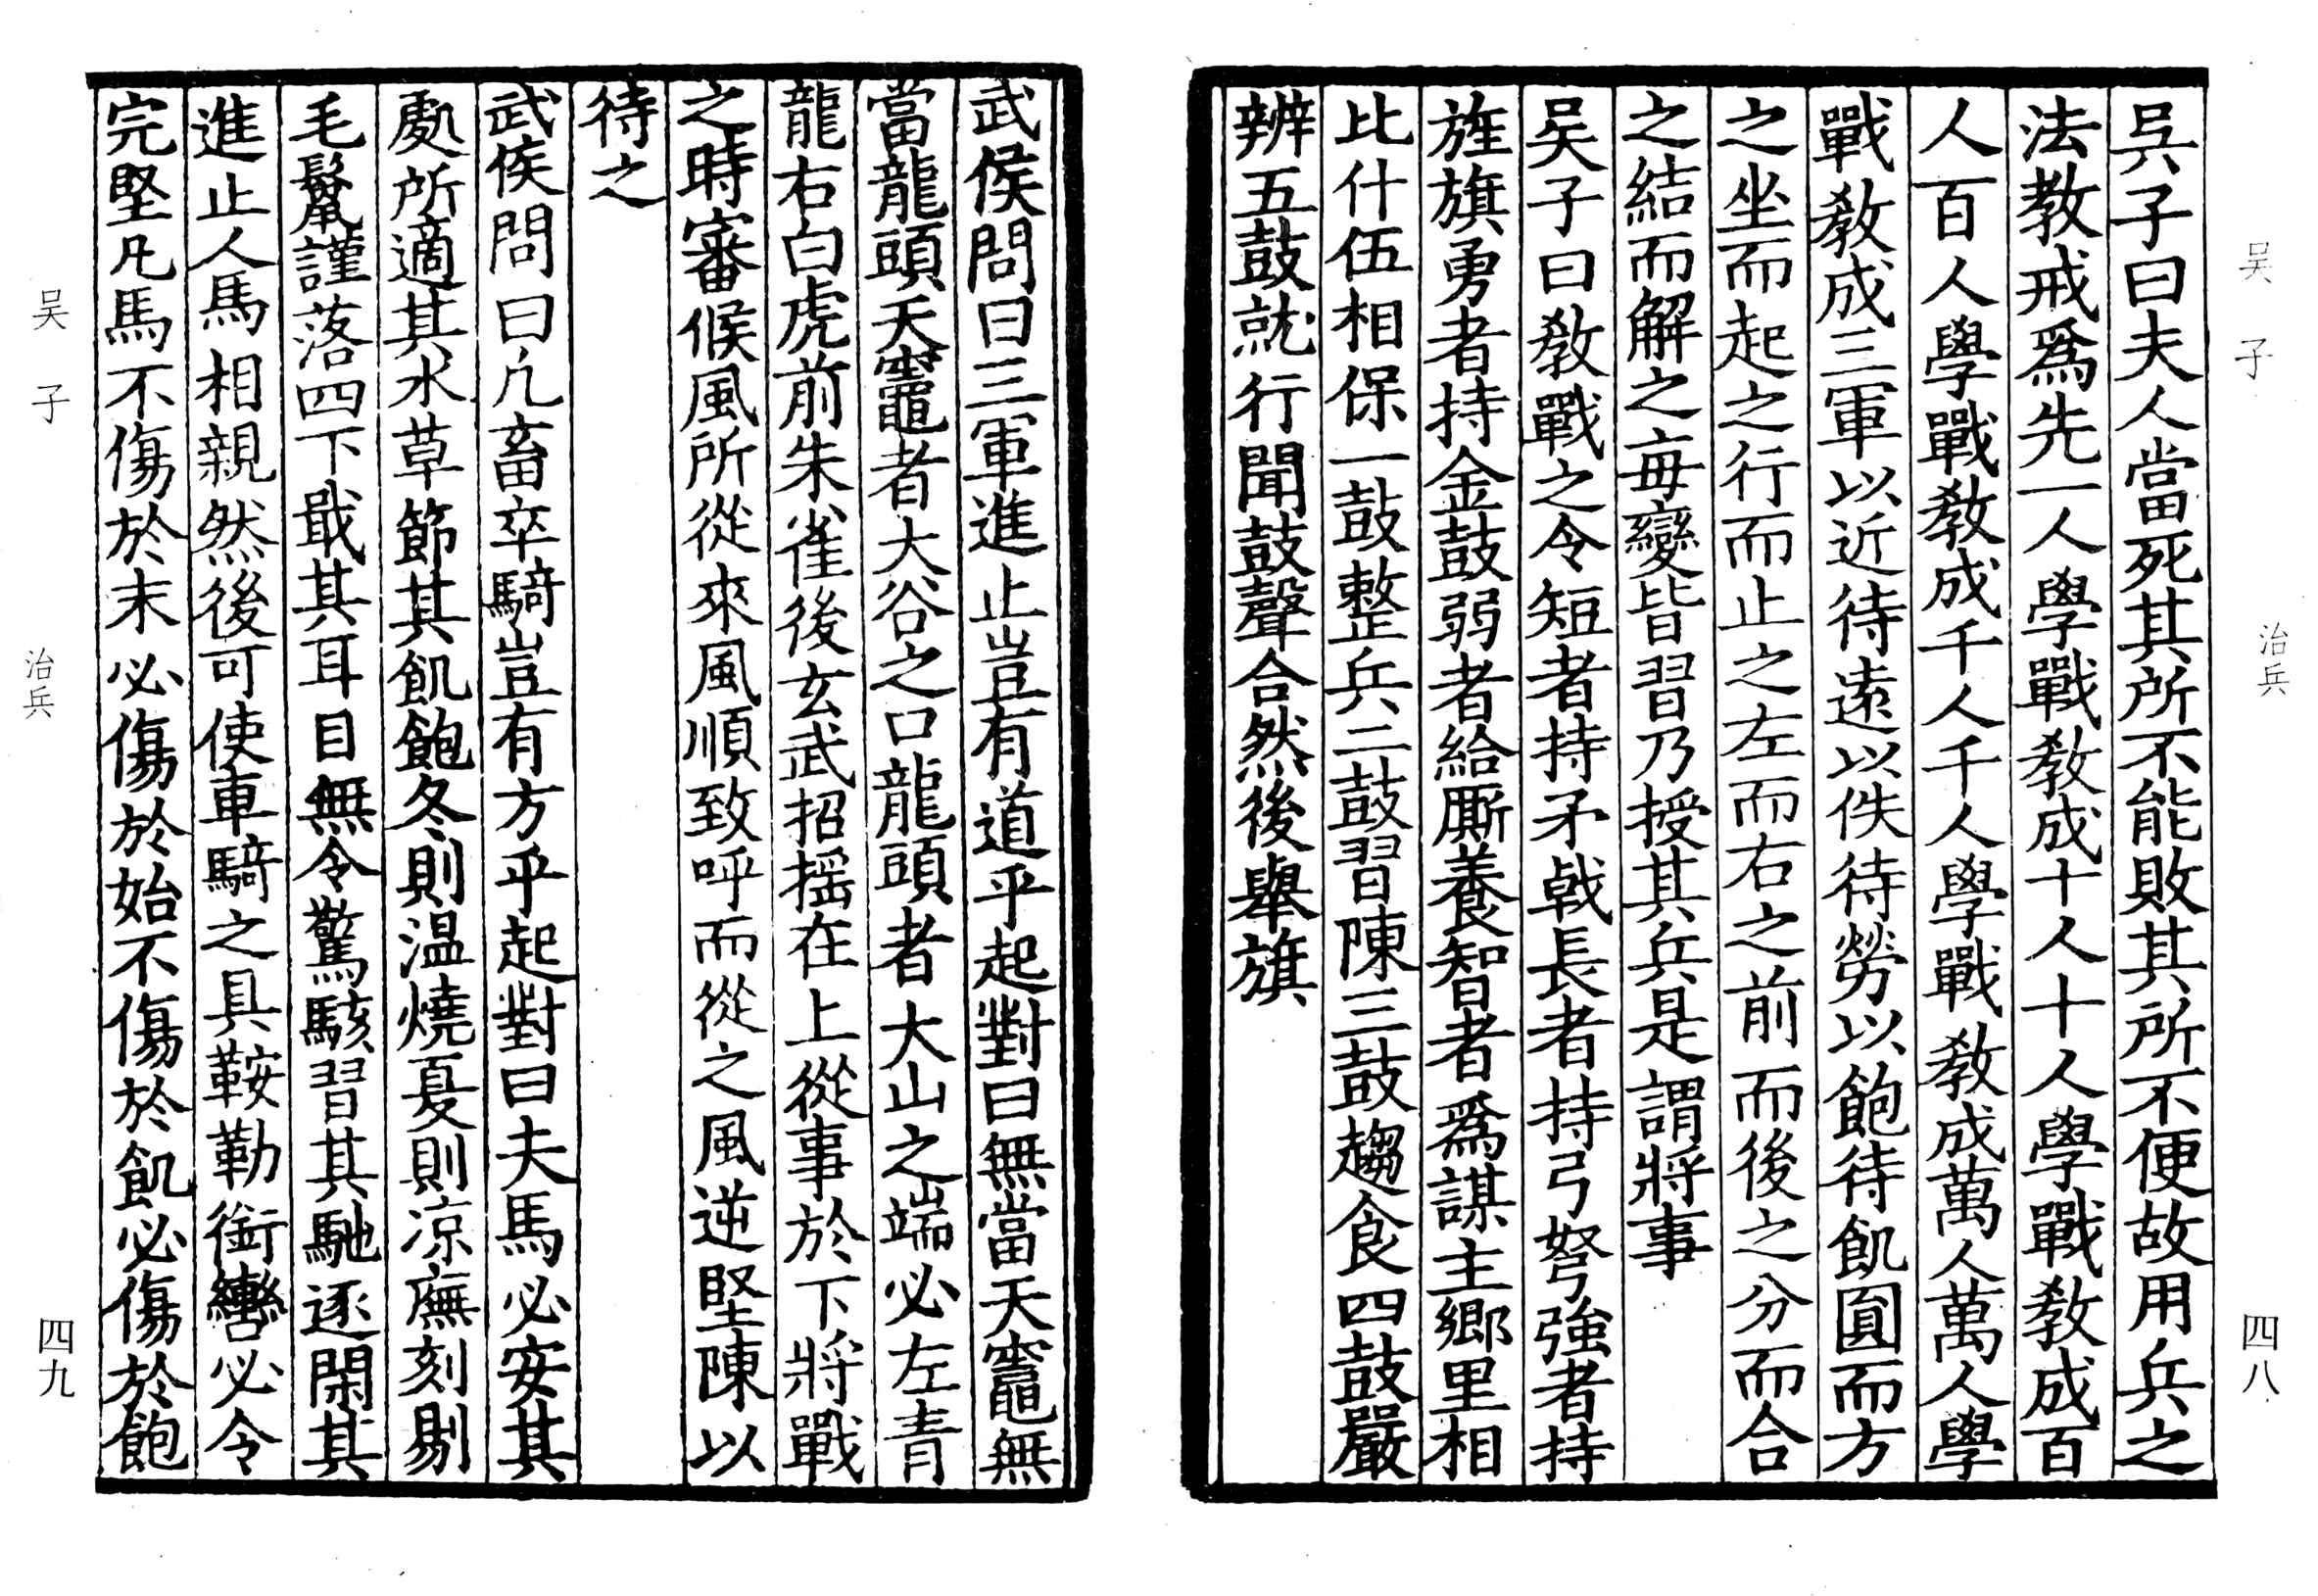 吳子曰夫人當死其所不能敗其所不便故用兵之
法教戒爲先一人學戰教成十人十人學戰教成百
人百人學戰教成千人千人學戰教成萬人萬人學
戰教成三軍以近待遠以佚待勞以飽待飢圓而方
之坐而起之行而止之左而右之前而後之分而合
之結而解之毎變皆習乃授其兵是謂將事
吳子曰教戰之令短者持矛戟長者持弓弩強者持
旌旗勇者持金鼓弱者給厮養智者爲謀主鄉里相
比什伍相保一鼓整兵二鼓習陳三鼓趨食四鼓嚴
辨五鼓就行聞鼓聲合然後舉旗
吴子
治兵
四八
武侯問曰三軍進止豈有道乎起對曰無當天竈無
當龍頭天竈者大谷之口龍頭者大山之端必左青
龍右白虎前朱雀後玄武招摇在上從事於下將戰
之時審候風所從來風順致呼而從之風逆堅陳以
待之
武侯問曰凢畜卒騎豈有方乎起對曰夫馬必安其
處所適其水草節其飢飽冬則温燒夏則凉廡刻剔
毛鬣謹落四下戢其耳目無令驚駭習其馳逐閑其
進止人馬相親然後可使車騎之具鞍勒銜轡必令
完堅凡馬不傷於末必傷於始不傷於飢必傷於飽
吴子
治兵
四九